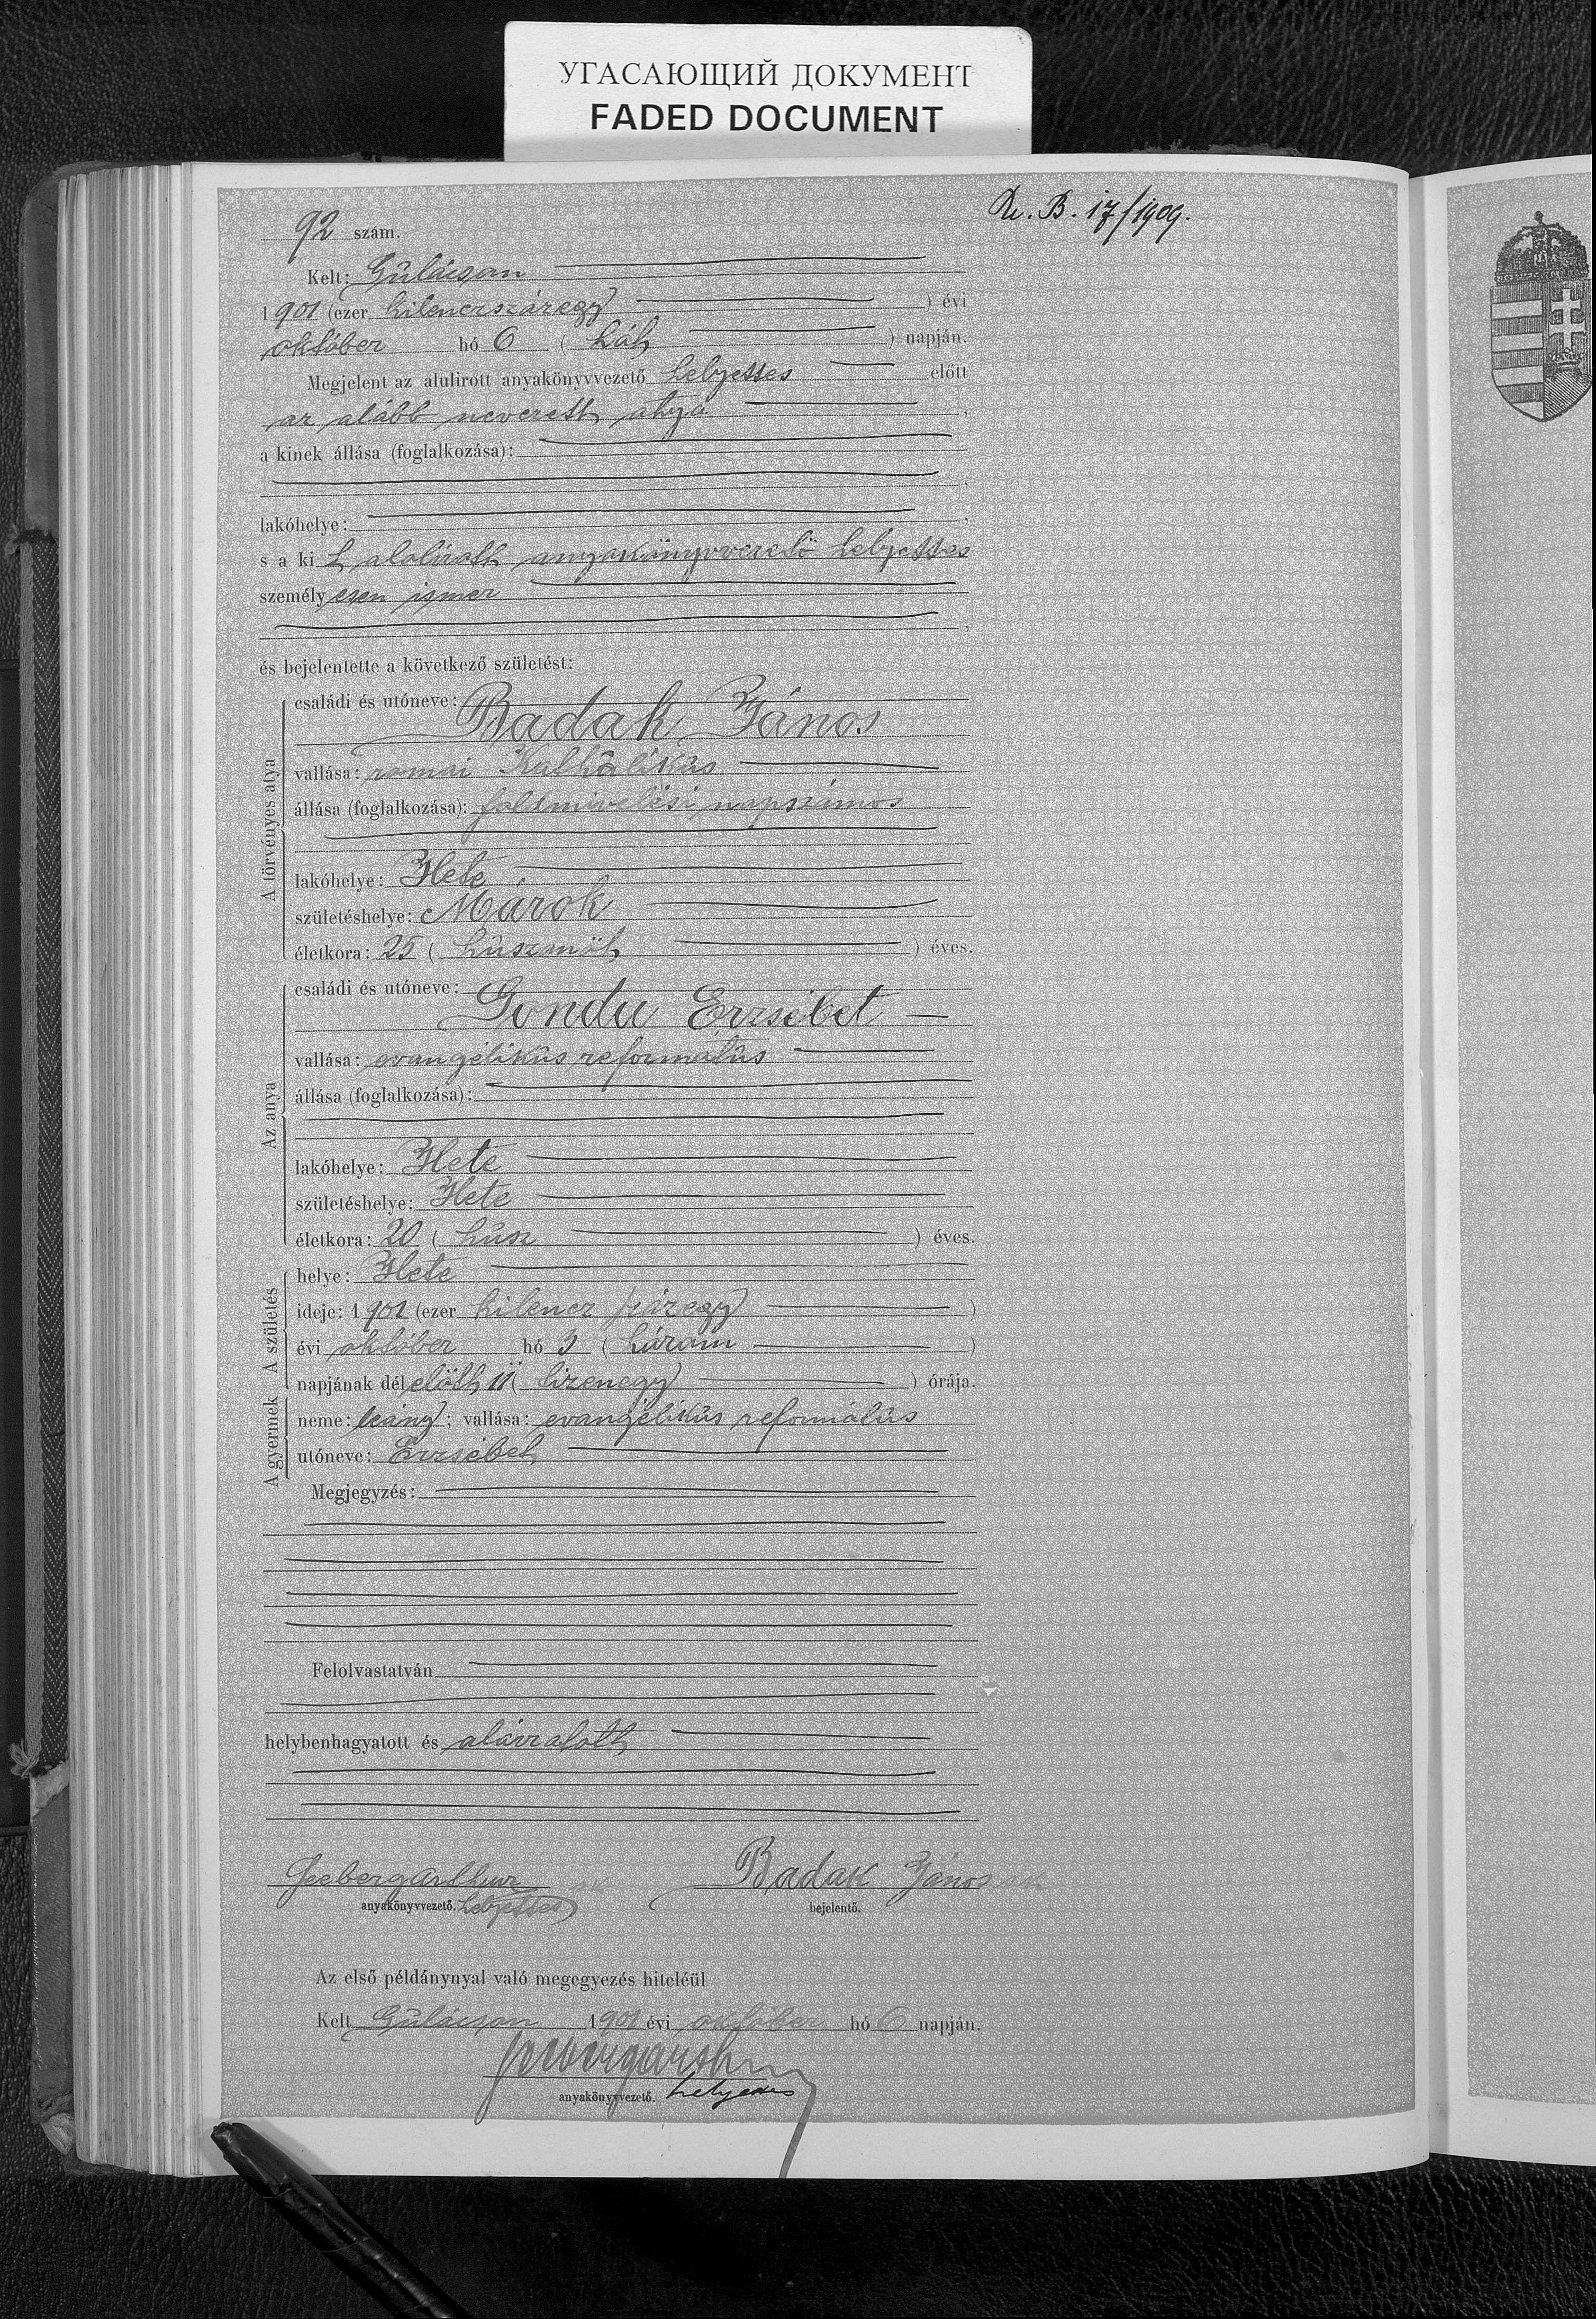 УГАСАЮЩИЙ ДОКУМЕНТ
FADED DOCUMENT
B. 17/1909.
92 szám.
Kelt: Gulácson
1901 (ezer kilenczszázegy) évi
október hó 6 (hat) napján.
Megjelent az alulirott anyakönyvvezető helyettes előtt
az alább nevezett atya
a kinek állása (foglalkozása):
lakóhelye:
s a kit alolirott anyakönyvvezető helyettes
személyesen ismer
és bejelentette a következő születést:
A törvényes atya
családi és utóneve:
Badak János
vallása: romai katholikus
állása (foglalkozása): földmivelési napszámos
lakóhelye: Hete
születéshelye: Márok
életkora: 25 (huszonöt) éves.
Az anya
családi és utóneve:
Gondu Erzsébet
vallása: evangélikus református
állása (foglalkozása):
lakóhelye: Hete
születéshelye: Hete
életkora: 20 (húsz) éves.
A születés
helye: Hete
ideje: 1901 (ezer kilencz százegy)
évi október hó 3 (három)
napjának délelőtt 11 (tizenegy) órája.
A gyermek
neme: leány; vallása: evangélikus református
utóneve: Erzsébet
Megjegyzés:
Felolvastatván
helybenhagyatott és aláiratott
Badak János
anyakönyvvezető. helyettes
bejelentő.
Az első példánynyal való megegyezés hiteléül
Kelt Gulácson 1901 évi október hó 6 napján.
anyakönyvvezető. helyettes